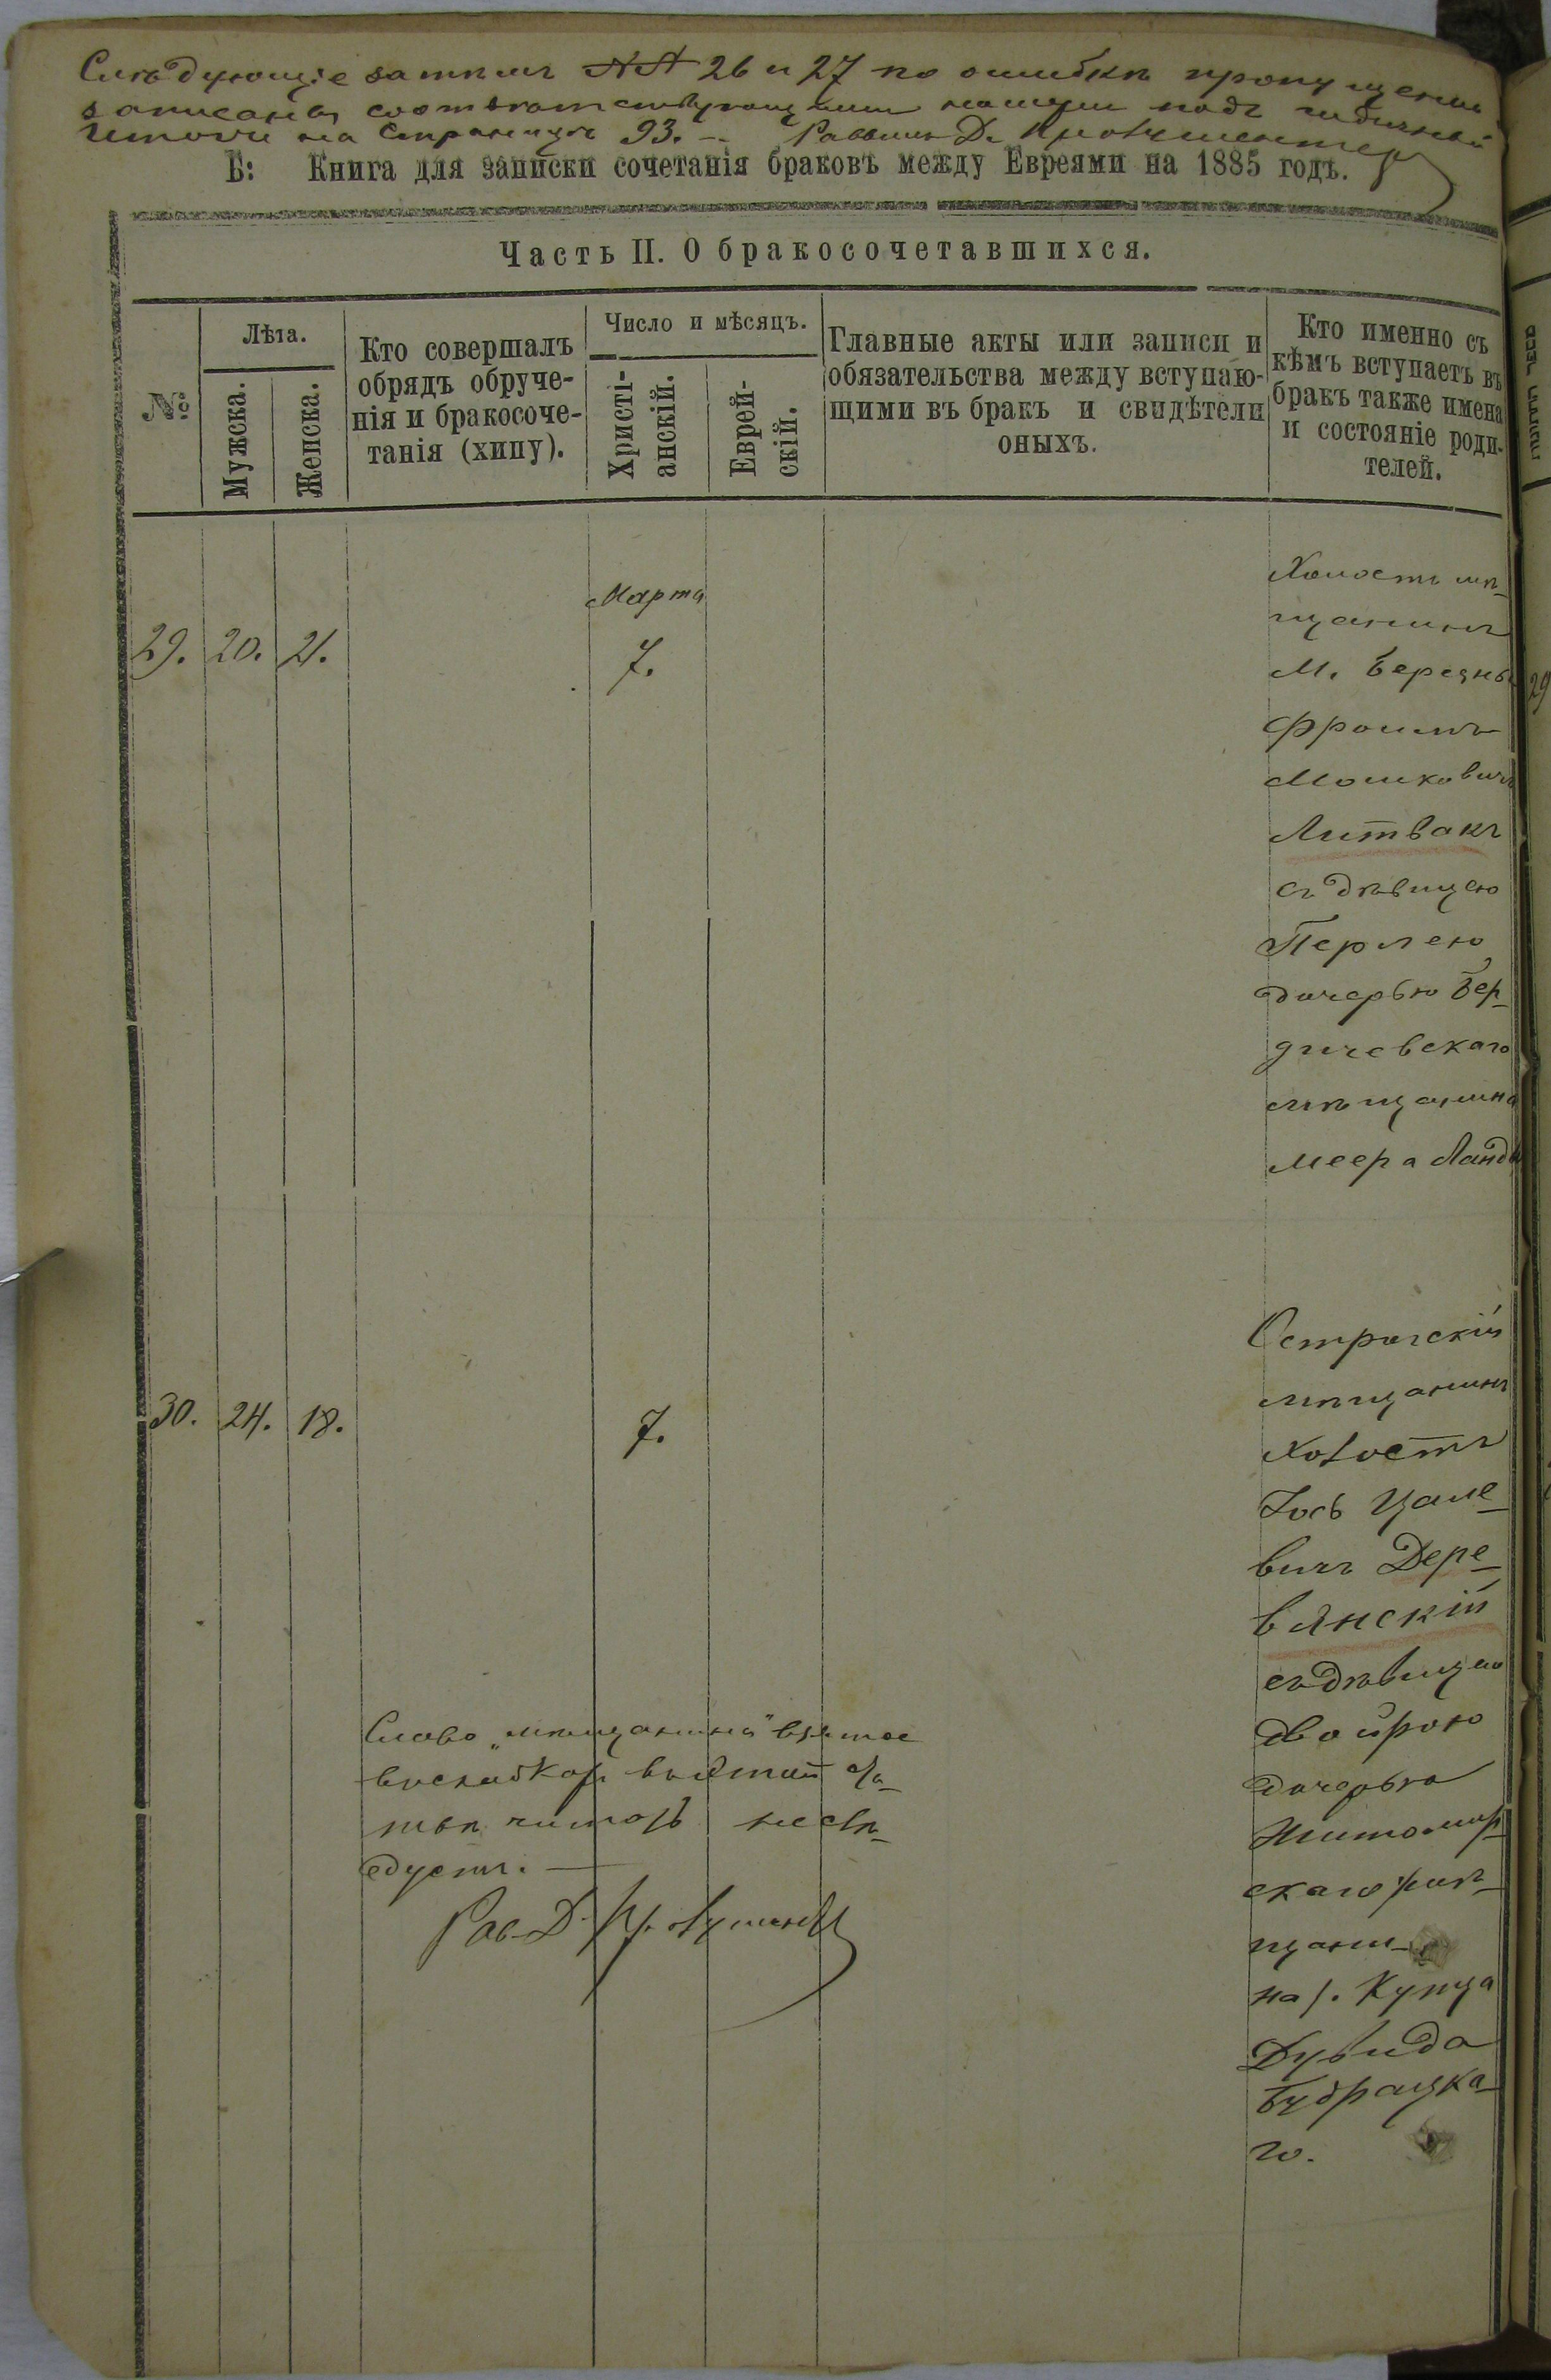 Слѣдующіе затѣмъ №№ 26 и 27 по ошибкѣ пропущены
записаны соотвѣтствующими подъ
на страницѣ 93. — Раввинъ Д.
Б: Книга для записки сочетанія браковъ между Евреями на 1885 годъ.
Часть II. О бракосочетавшихся.
№
Лѣта.
Мужска.
Женска.
Кто совершалъ
обрядъ обруче-
нія и бракосоче-
танія (хипу).
Число и мѣсяцъ.
Христі-
анскій.
Еврей-
скій.
Главные акты или записи и
обязательства между вступаю-
щими въ бракъ и свидѣтели
оныхъ.
Кто именно съ
кѣмъ вступаетъ въ
бракъ также имена
и состояніе роди-
телей.
29. 20. 21.
Марта
7.
Холостъ мѣ-
щанинъ
М. Березны
Фроимъ
Мошковичъ
Литвакъ
съ дѣвицею
Перлею
дочерью Бер-
дичевскаго
мѣщанина
Меера Ланда
30. 24. 18.
7.
Острогскій
мѣщанинъ
холостъ
Іось Цале-
вичъ Дере-
вянскій
съ дѣвицею
Двойрою
дочерью
Житомир-
скаго (мѣ-
щани-
на). Купца
Дувида
Будрацка-
го.
Слово „мѣщанина" взятое
въ скобкахъ въ этой ста-
тьѣ читать не слѣ-
дуетъ. —
Рав. Д.
29